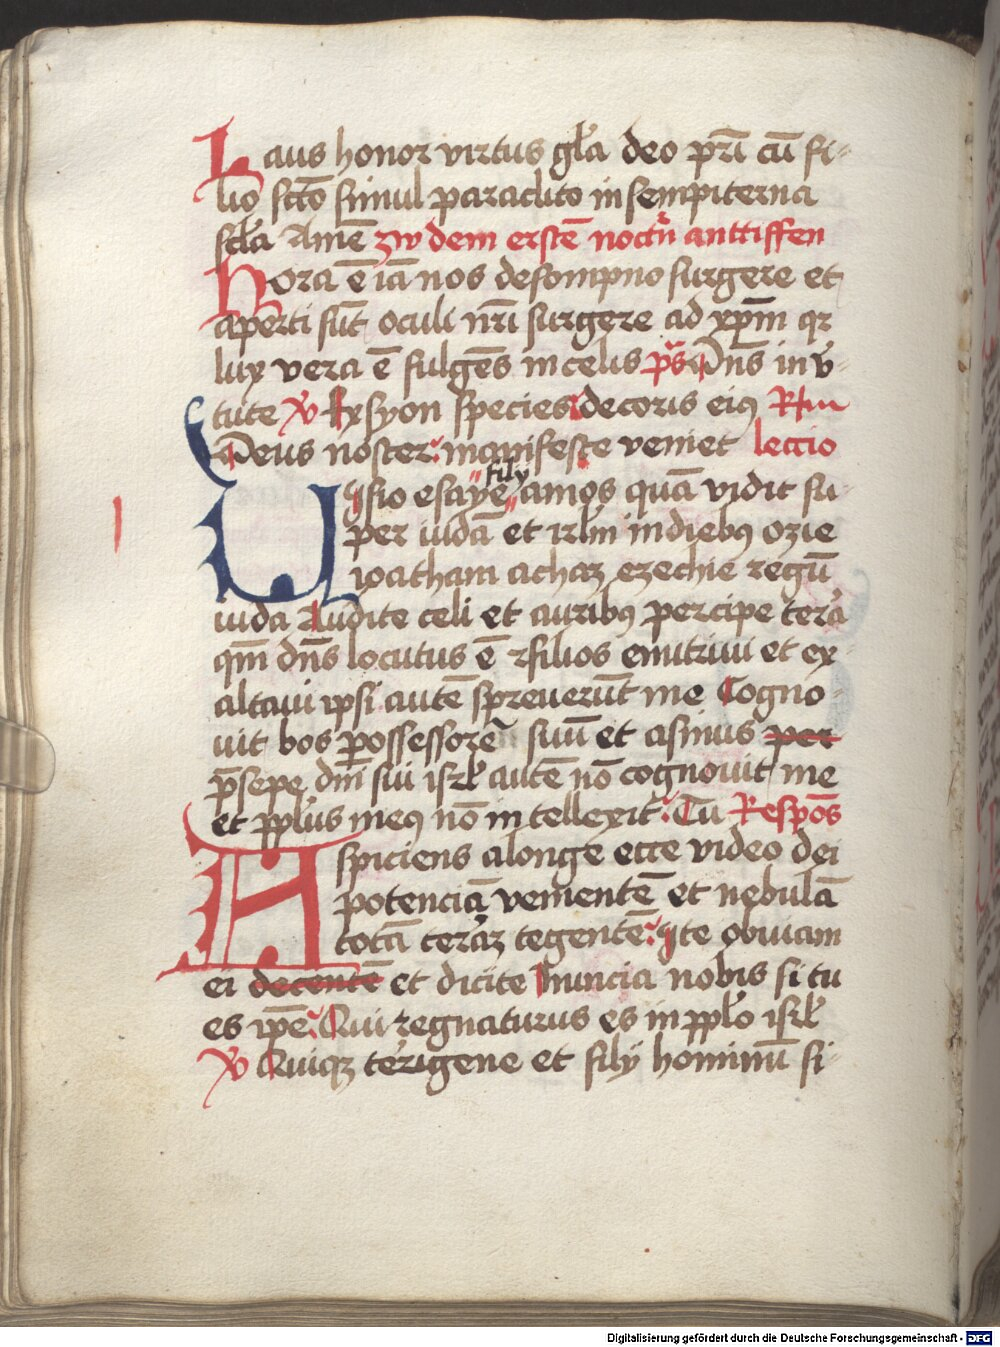 Laus honor virtus gl̄a deo pr̄i cū fi-
lio sc̄to simul paraclito in sempiterna
sc̄la Amē zw dem erstē noctn̄ anttiffen
Hora ē iā nos de sompno surgere et
aperti sūt oculi nr̄i surgere ad xp̄m qr
lux vera ē fulgēs in celus ps̄ Dn̄s in v̄-
tute V Ex syon species decoris eiꝰ Rm
Deus noster manifeste veniet leccio
fily
Uisio esaye amos quā vidit su-
per iudā et irl̄m in diebꝰ ozie
ioatham achaz ezechie regū
iuda Audite celi et auribꝰ percipe tera
qm̄ dn̄s locutus ē filios enutriui et ex-
altaui ipsi autē spreuerūt me Cogno-
uit bos possessorē suū et asinus per
p̄sepe dn̄i sui isrl̄ autē nō cognouit me
et ppl̄us meꝰ nō intellexit Tu Respōs
Aspiciens alonge ecce video dei
potenciā venientē et nebulā
totā teraꝫ tegentē ite obuiam
ei decentē et dicite nuncia nobis si tu
es ip̄e Qui regnaturus es in ppl̄o isrl̄
V Quiqꝫ terigene et fily hominū si-
Digitalisierung gefördert durch die Deutsche Forschungsgemeinschaft - DFG